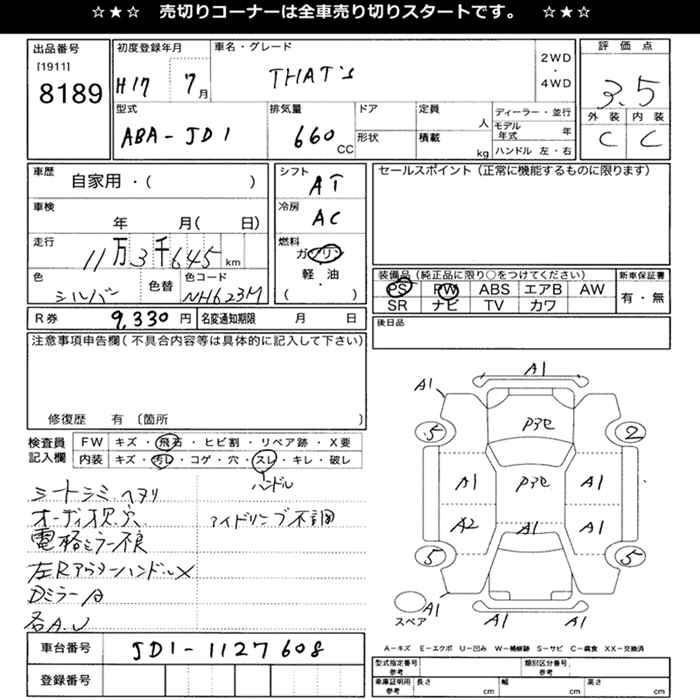 ☆★☆ 売切りコーナーは全車売り切りスタートです。 ☆★☆
出品番号
[1911]
8189
初度登録年月
H17 7月
車名・グレード
THAT's
2WD
・
4WD
評価点
3.5
外装 内装
C C
型式
ABA-JD1
排気量
660 CC
ドア
形状
定員 人
積載 kg
ディーラー・並行
モデル年式 年
ハンドル 左・右
車歴
自家用・( )
車検
年 月( 日)
走行
11万3千645 km
色
シルバー
色替
色コード
NH623M
シフト
AT
冷房
AC
燃料
ガソリン
軽・油
( )
セールスポイント(正常に機能するものに限ります)
装備品(純正品に限り○をつけてください)
PS PW ABS エアB AW
SR ナビ TV カワ
新車保証書
有・無
R券 9,330 円 名変通知期限 月 日
後日品
注意事項申告欄(不具合内容等は具体的に記入して下さい)
修復歴 有 〔箇所
検査員
記入欄
FW キズ・飛石・ヒビ割・リペア跡・X要
内装 キズ・汚レ・コゲ・穴・スレ・キレ・破レ
ハンドル
シートシミ、ヘタリ
オーディオ欠、穴
アイドリング不調
電格ミラー不良
左Rアウターハンドル✕
Dミラー A
各A.U
A1
A1
5 P3で 2
A1 P3で A1
A2 A1 A1
5 5
スペア
A1 A1 A1
A-キズ E-エクボ U-凹み W-補修跡 S-サビ C-腐食 XX-交換済
車台番号 JD1-1127608
登録番号
型式指定番号 参考
類別区分番号 参考
車庫証明用 参考
長さ cm 幅 cm 高さ cm